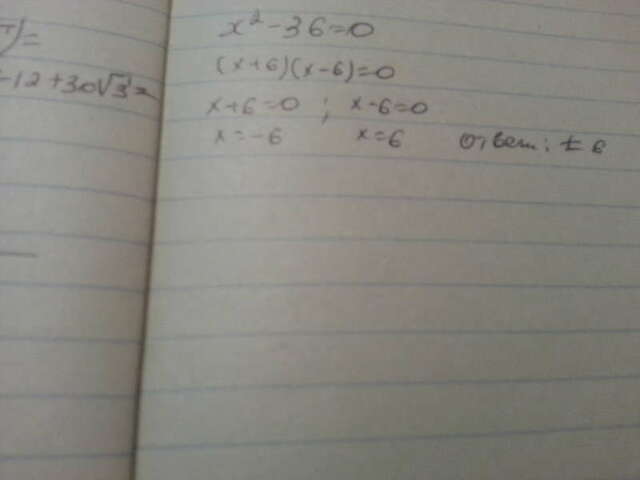 )=
-12+30√3=
x²-36=0
(x+6)(x-6)=0
x+6=0 ; x-6=0
x=-6 x=6 Ответ: ±6